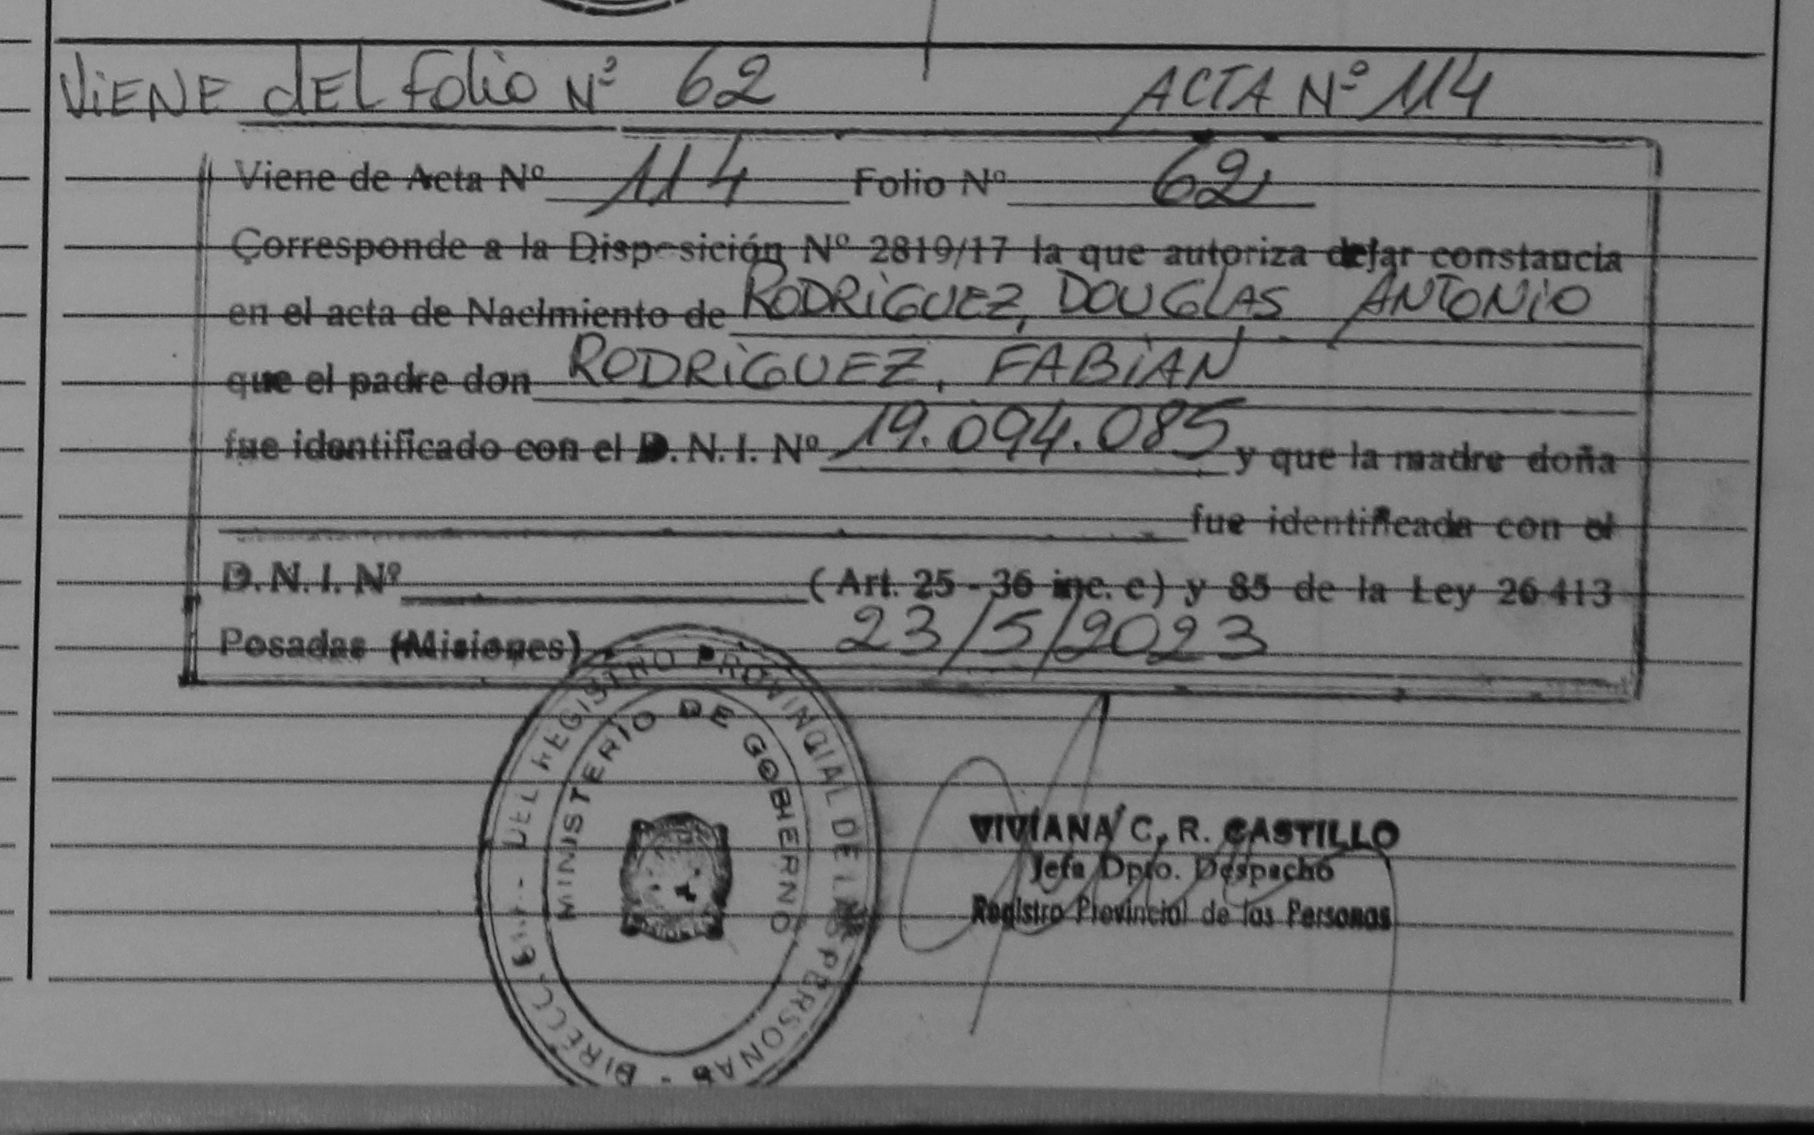 ViENE dEL Folio Nº 62 ACTA Nº 114
Viene de Acta Nº 114 Folio Nº 62
Corresponde a la Disposición Nº 2819/17 la que autoriza dejar constancia
en el acta de Nacimiento de RODRiGUEZ, DOUGLAS ANTONiO
que el padre don RODRiGUEZ, FABiAN
fue identificado con el D.N.I. Nº 19.094.085 y que la madre doña
fue identificada con el
D.N.I. Nº (Art. 25 - 36 inc. c) y 85 de la Ley 26413
Posadas (Misiones) 23/5/2023
DEL REGISTRO PROVINCIAL DE LAS PERSONAS -
MINISTERIO DE GOBIERNO
VIVIANA C. R. CASTILLO
Jefa Dpto. Despacho
Registro Provincial de las Personas